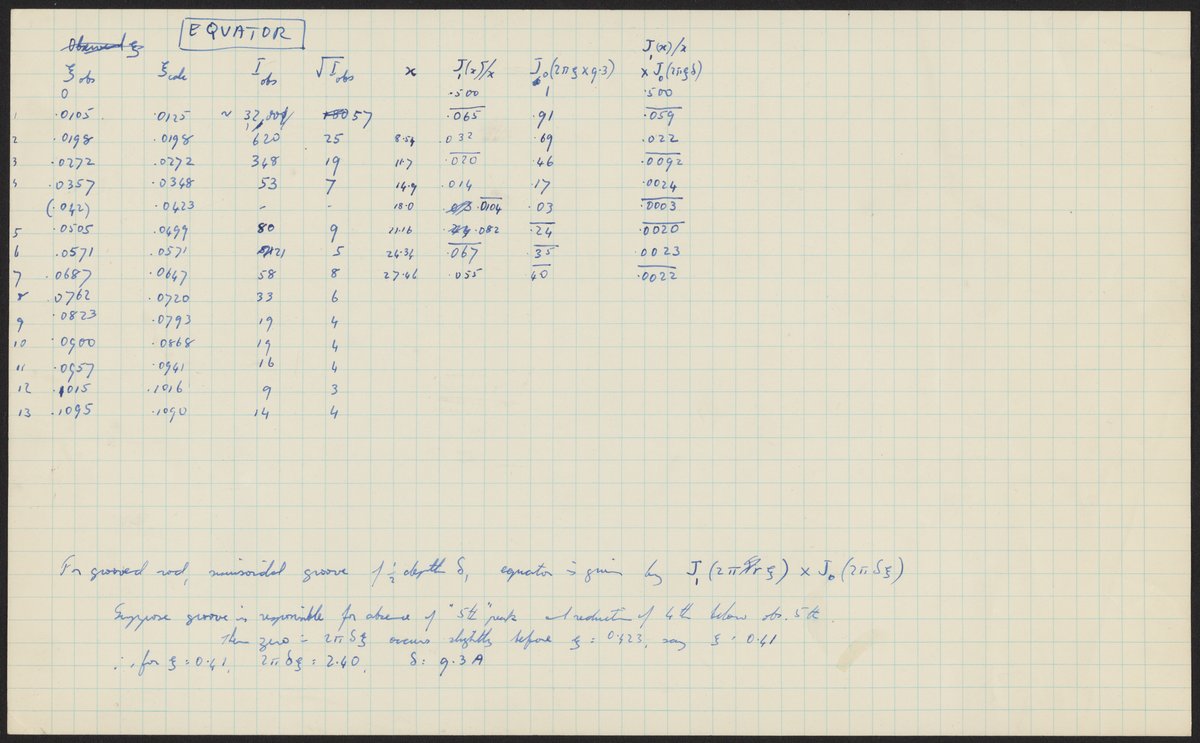 EQUATOR
Observed ξ
J₁(x)/x
ξobs ξcalc Iobs √Iobs x J₁(x)/x J₀(2πξ×9.3) × J₀(2πξδ)
0 .500 1 .500
1 .0105 .0125 ~ 32,000 57 .065 .91 .059
2 .0198 .0198 620 25 8.54 .032 .69 .022
3 .0272 .0272 348 19 11.7 .020 .46 .0092
4 .0357 .0348 53 7 14.9 .014 .17 .0024
(.042) .0423 - - 18.0 .0104 .03 .0003
5 .0505 .0499 80 9 21.16 .082 .24 .0020
6 .0571 .0571 21 5 24.34 .067 .35 .0023
7 .0687 .0647 58 8 27.46 .055 40 .0022
8 .0762 .0720 33 6
9 .0823 .0793 19 4
10 .0900 .0868 19 4
11 .0957 .0941 16 4
12 .1015 .1016 9 3
13 .1095 .1090 14 4
For grooved rod, sinusoidal groove of ½ depth δ, equator is given by J₁(2πrξ) × J₀(2πδξ)
Suppose groove is responsible for absence of "5th" peak and reduction of 4th below obs. 5th.
Then zero in 2πδξ occurs slightly before ξ = 0.423, say ξ = 0.41
∴ for ξ = 0.41, 2πδξ = 2.40, δ = 9.3 A